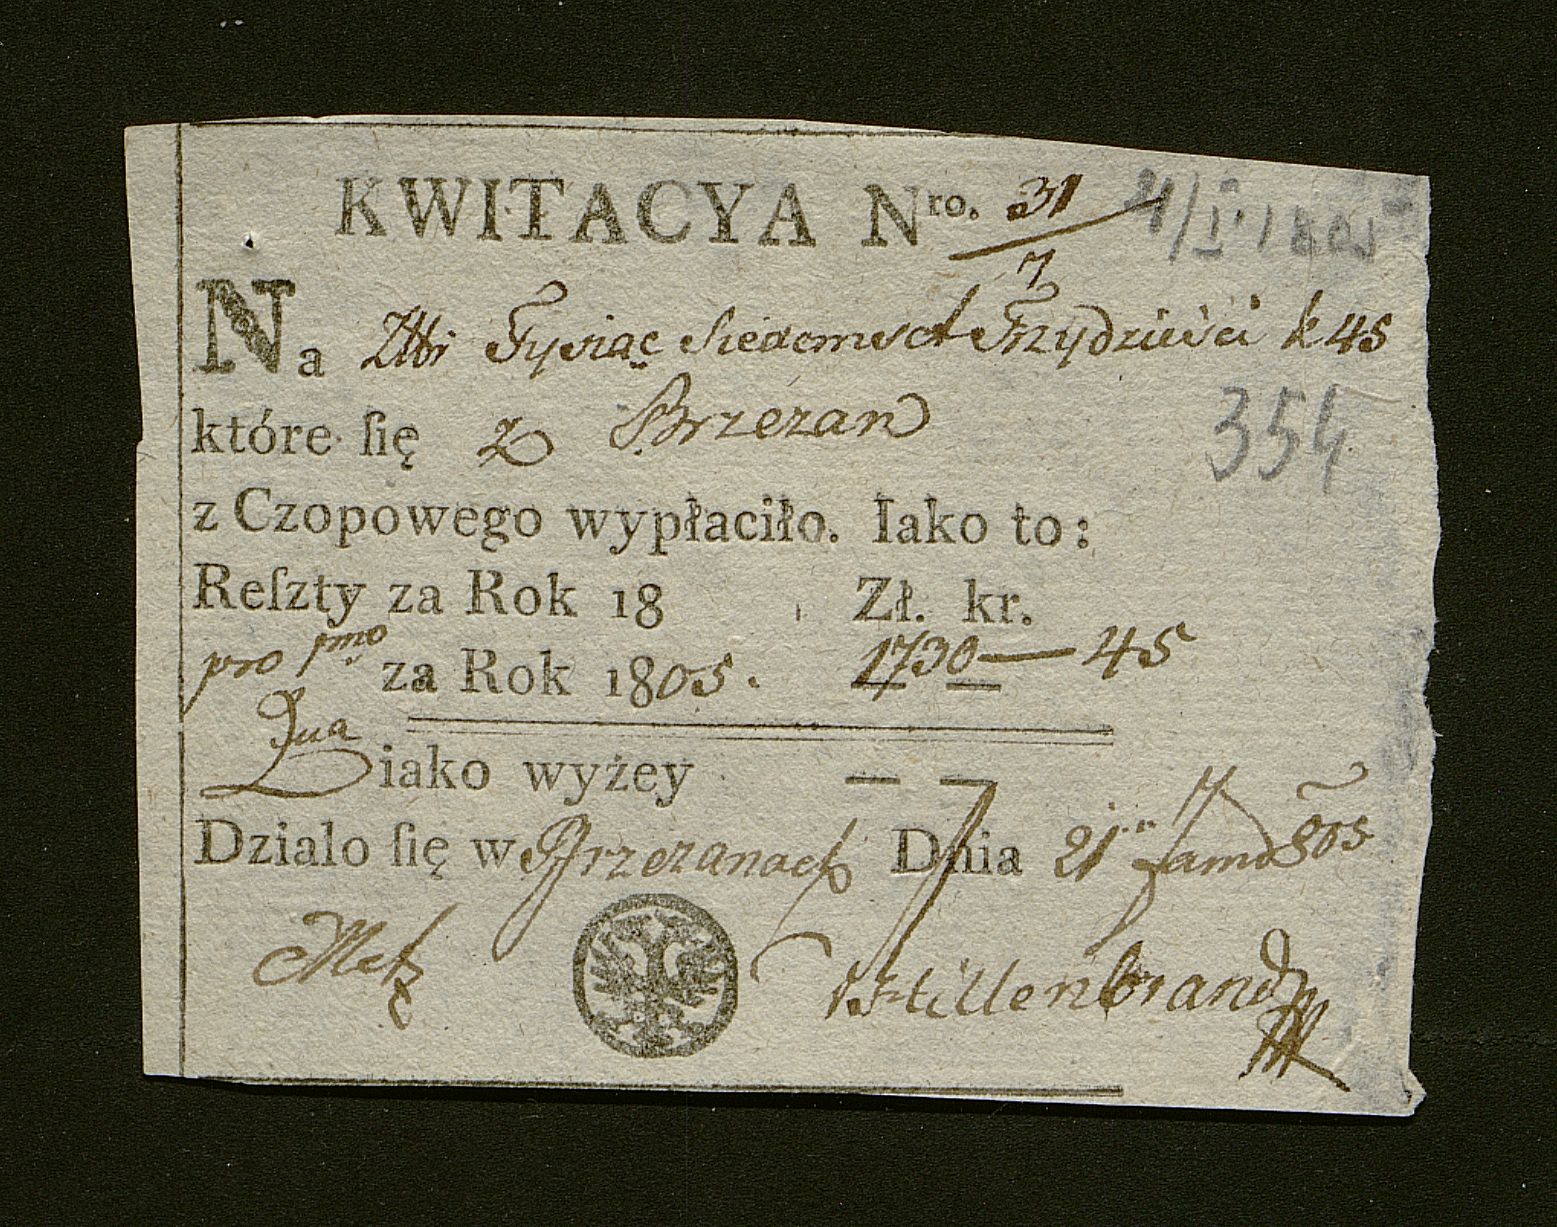 KWITACYA Nro. 31/7
Na Złtr Tysiąc Siedemset Trzydzieści k 45
które ſię z Brzezan
354
z Czopowego wypłaciło. Iako to:
Reſzty za Rok 18 Zł. kr.
pro pmo za Rok 1805. 1730 — 45
Dnia iako wyżey — —
Działo ſię w Brzezanach Dnia 21 805
Metz Hillenbrand